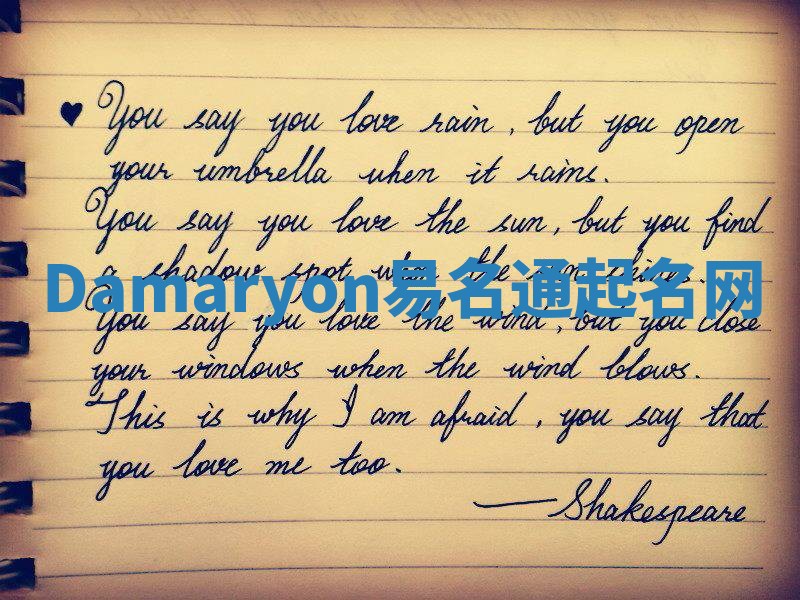 ♥ You say you love rain, but you open
your umbrella when it rains.
You say you love the sun, but you find
a shadow spot when the sun shines.
Damaryon易名通起名网
You say you love the wind, but you close
your windows when the wind blows.
This is why I am afraid, you say that
you love me too.
—Shakespeare